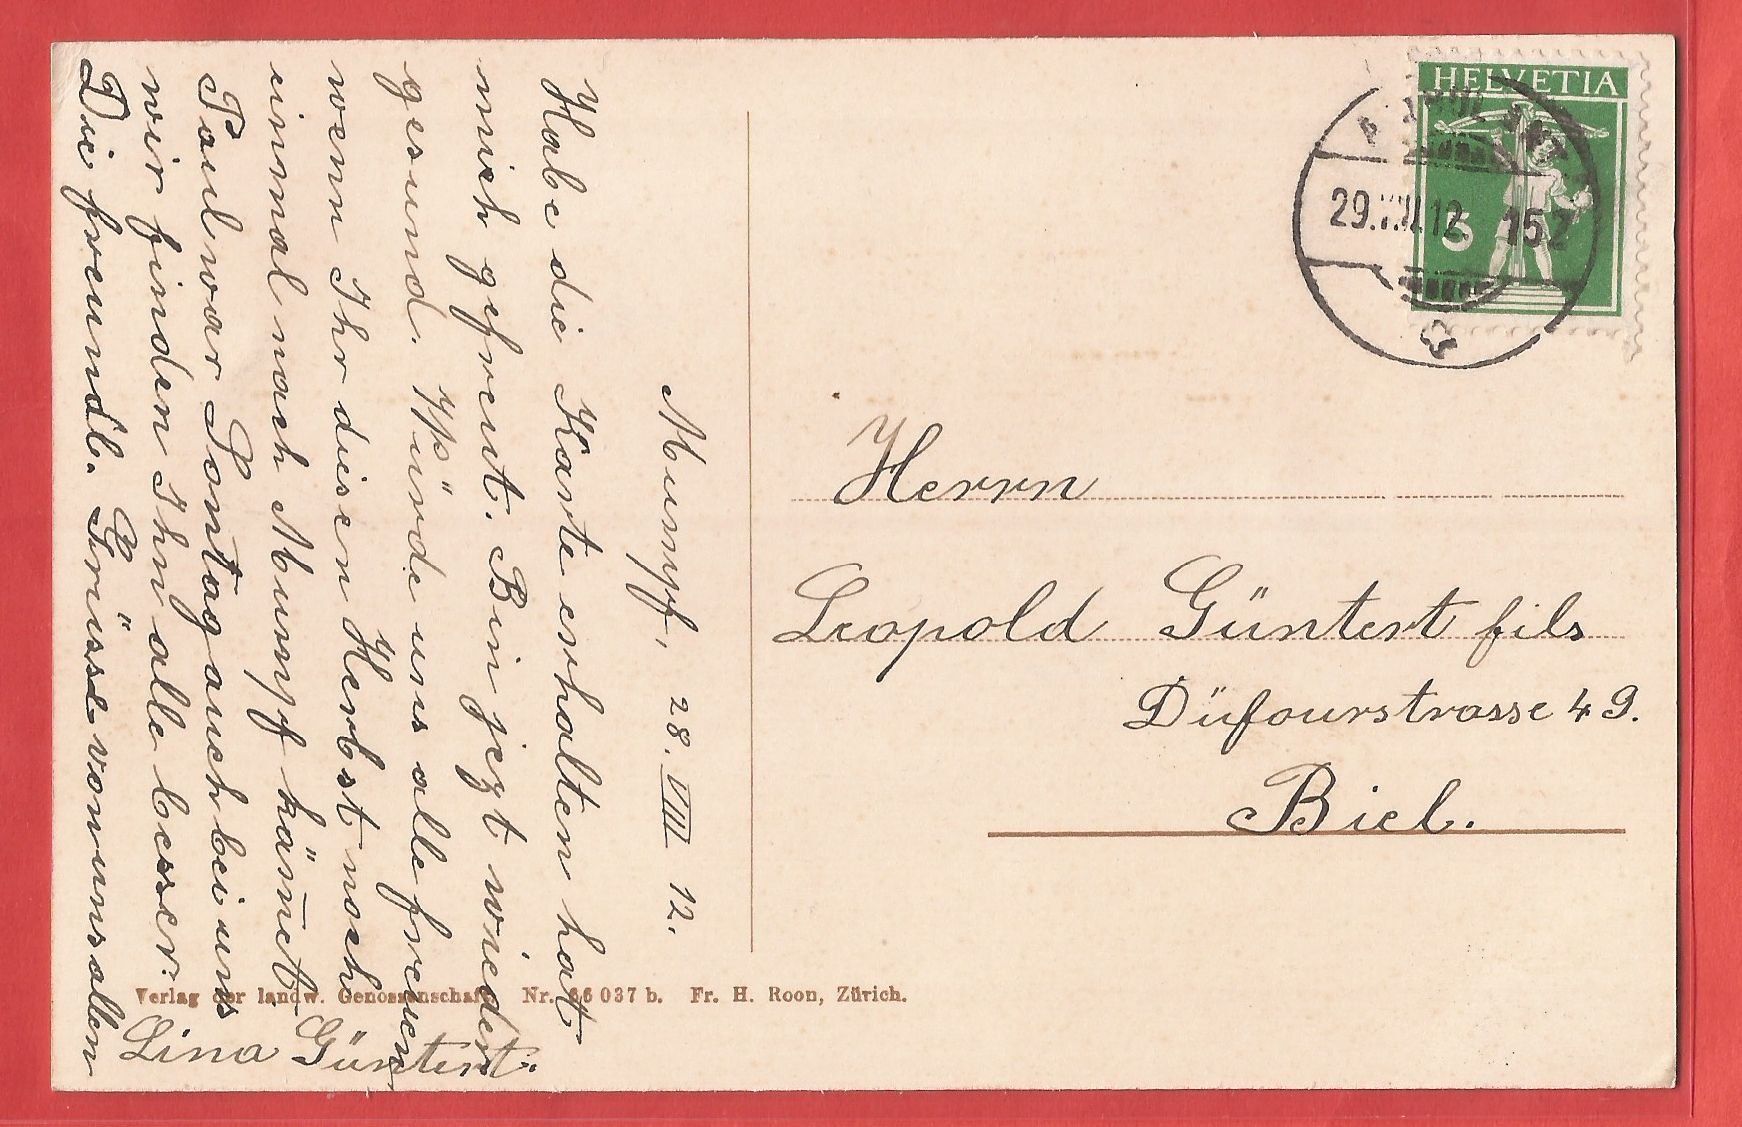 Mumpf, 28. VIII 12.
Habe die Karte erhalten hat
mich gefreut. Bin jezt wieder
gesund. Würde uns alle freuen
wenn Ihr diesen Herbst noch
einmal nach Mumpf käm̄et.
Paul war Son̄tag auch bei uns
wir finden Ihn alle besser.
Die freundl. Grüsse von uns allen
Lina Güntert.
HELVETIA
5
29.VIII.12. 15Z
Herrn
Leopold Güntert fils
Düfourstrasse 49.
Biel.
Verlag der landw. Genossenschaft. Nr. 66037 b. Fr. H. Roon, Zürich.